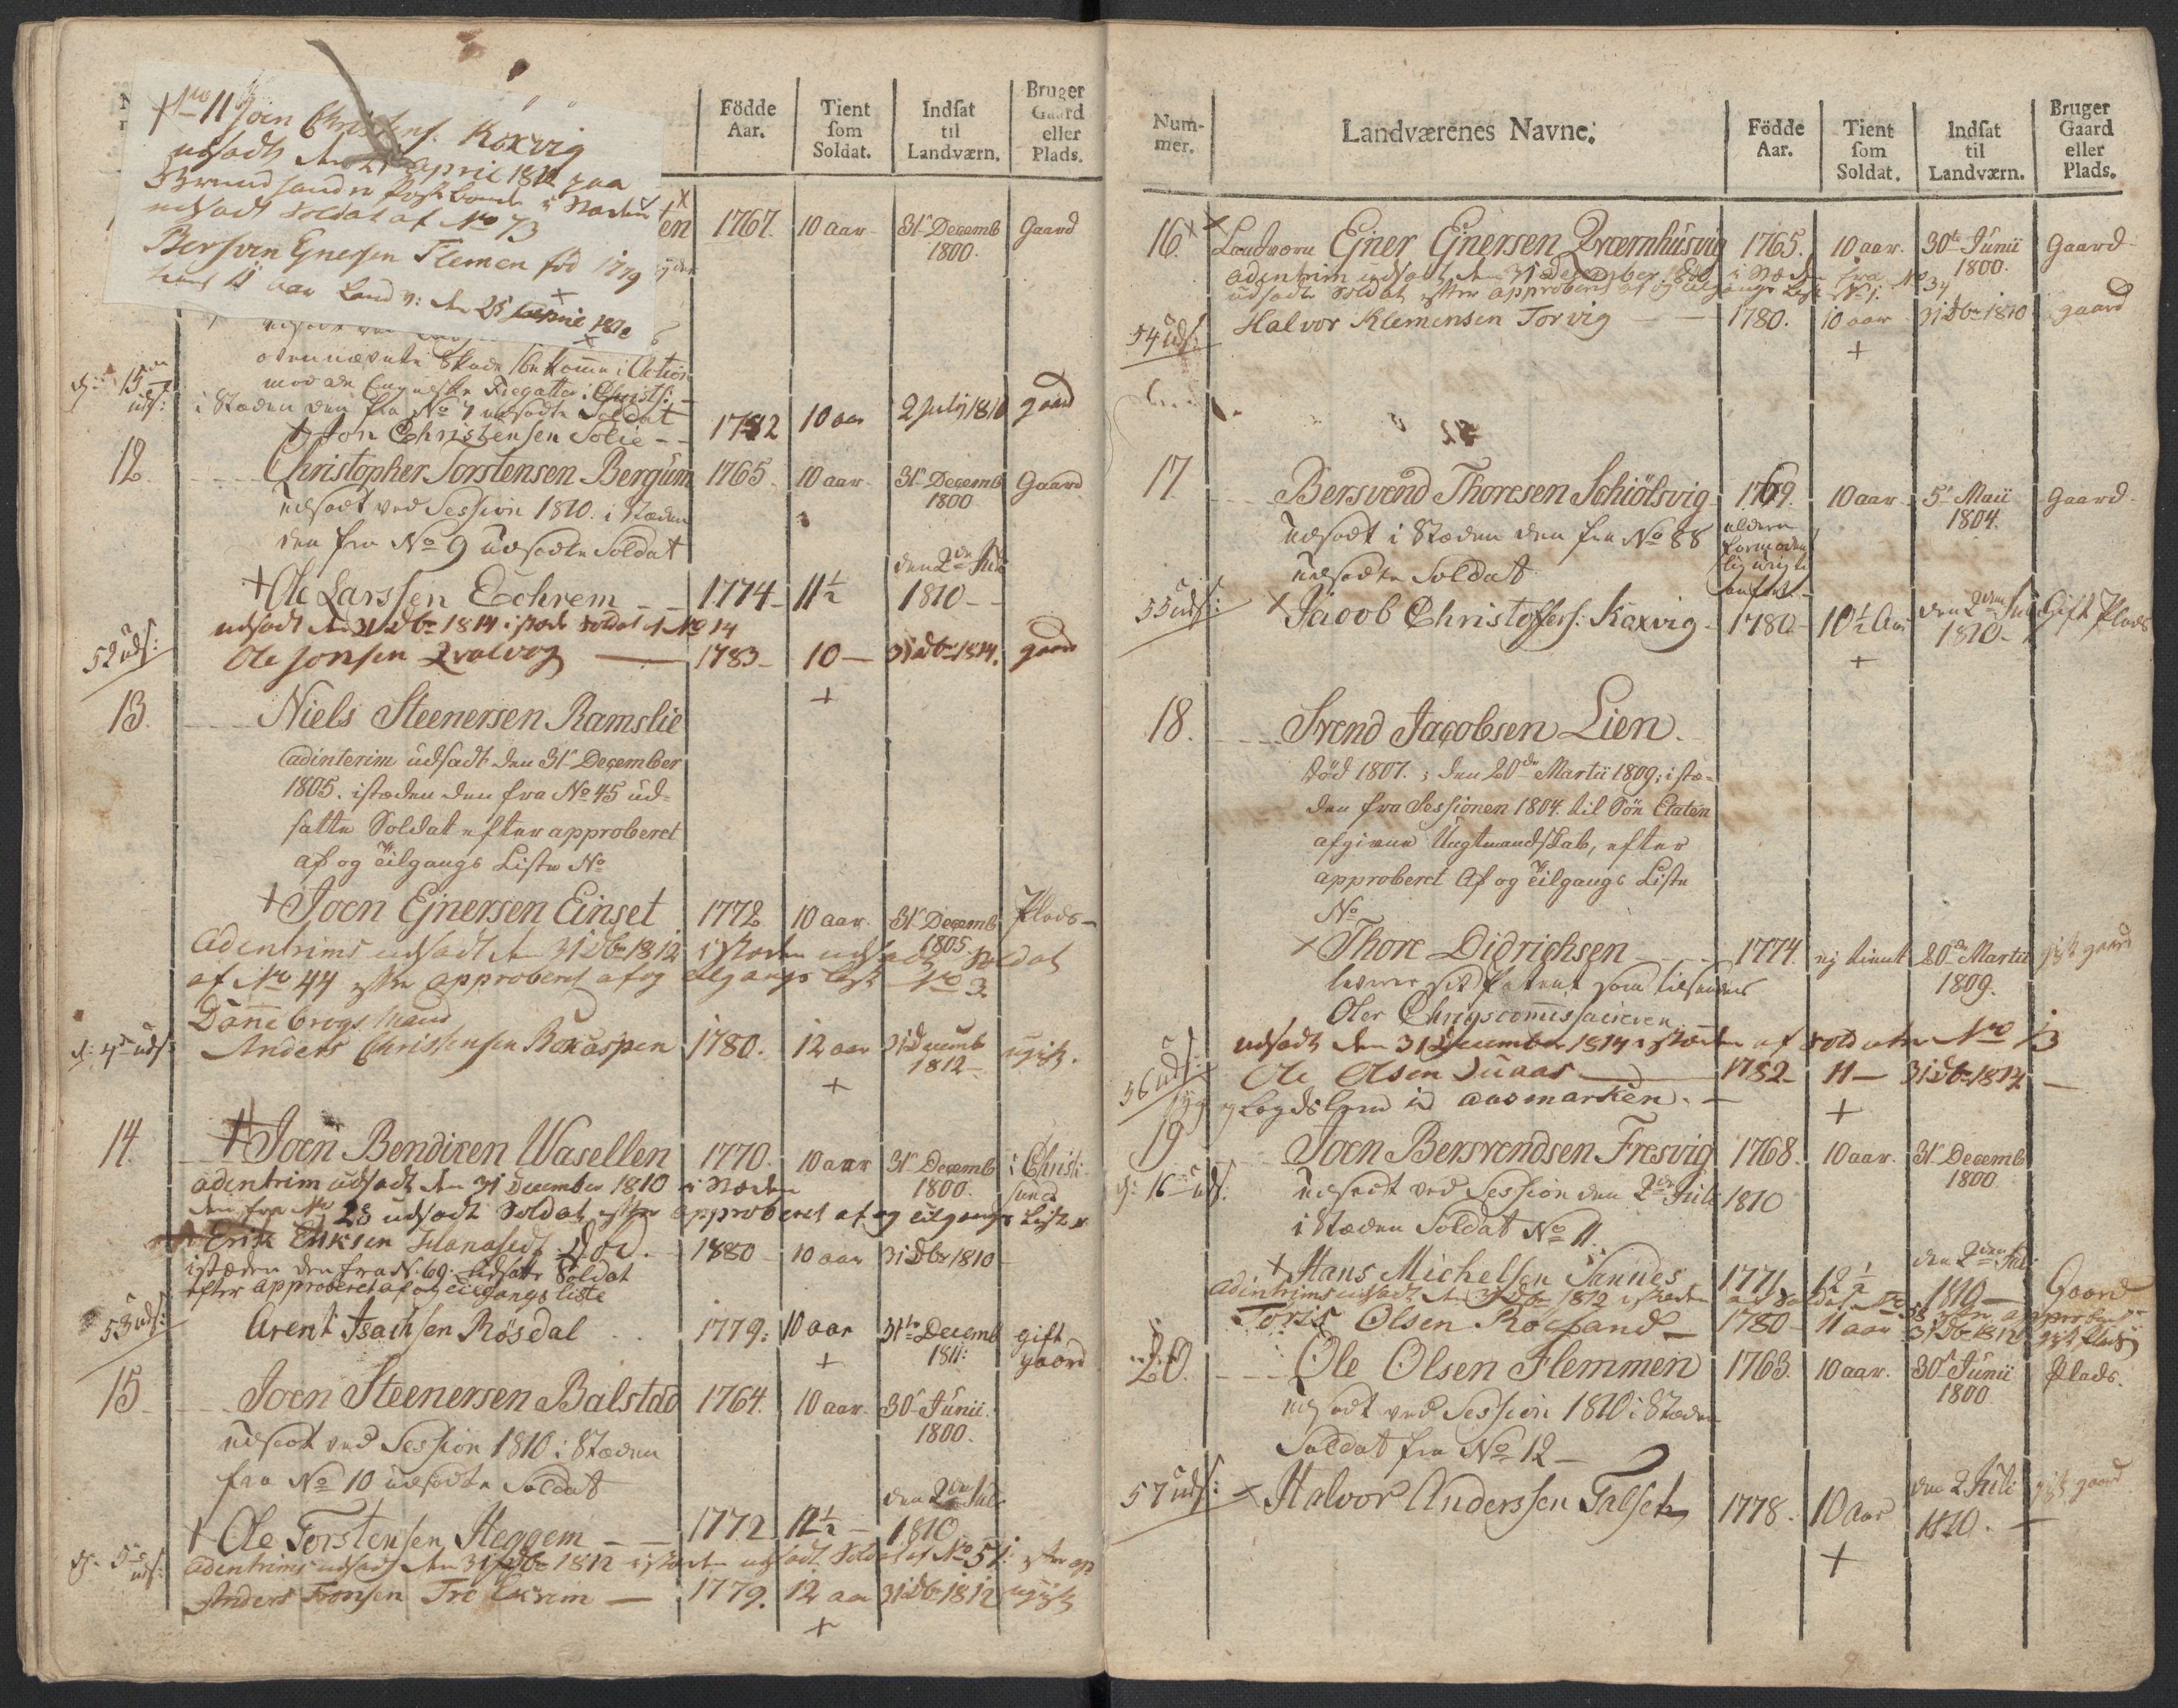 No 11 Joen Christens. Roxvig
udsadt den 25 april 1810 paa
udsadt Soldat af No 73
Bersven Gnersen Flemen fød 1779
tient 11 aar Land v: den 25 april 1810
Födde Aar.
Tient som Soldat.
Indsat til Landværn.
Bruger Gaard eller Plads.
1767. 10 aar 31t Decemb 1800. Gaard
ovennævnte Skade bekomme i Action
mod de Engelske Fregatter i Christs:
i Stæden den fra No 7 udsadte Soldat
Jon Christensen Solie 1782 10 aar 2 July 1810 gaard
12. Christopher Torstensen Bergum 1765. 10 aar 31t Decemb 1800 Gaard
udsadt ved Session 1810. i Stæden
den fra No 9 udsadte Soldat
Ole Larssen Echrem 1774 11½ den 2den Juli 1810
udsadt den 31 Dbr 1814 i stæde Soldat af No 14
52 uds: Ole Jonsen Qvalvog 1783 10 31 Dbr 1814. gaard
13. Niels Steenersen Ramslie
adinterim udsadt den 31t December
1805. istæden den fra No 45 ud-
satte Soldat efter approberet
af og tilgangs Liste No
Joen Ejnersen Einset 1772 10 aar. 31t Decemb 1805 Plads
Adentrims udsadt den 31 Dbr 1812 i stæden udsadt Soldat
af No 44 efter approberet af og tilgangs List No 3
Dannebrogs Mand
Anders Christensen Roxaspen 1780. 12 aar 31 Decemb 1812 ugift.
14. Joen Bendixen Wasellen 1770. 10 aar 31t Decemb 1800. i Christi-sund
adentrim udsadt den 31 December 1810 i Stæden
den fra No 28 udsadt Soldat efter approberet af og tilgangs Liste
Erik Eriksen Død. 1780 10 aar 31 Dbr 1810
istæden den fra N. 69. udsatte Soldat
efter approberet af og tilgangs liste
53 uds: Arent Isachsen Rösdal 1779: 10 aar 31te Decemb 1811: gift gaard
15 Joen Steenersen Balstad 1764. 10 aar 30t Junii 1800.
udsadt ved Session 1810 i Stæden
fra No 10 udsadte Soldat
Ole Torstensen Heggem 1772 12½ den 2den Juli 1810
adentrims udsadt den 31 Dbr 1812 i stæden udsadt Soldat af No 51: efter ap
Anders Tronsen Tro Exrem 1779. 12 aar 31 Dbr 1812 ugift
Num-mer.
Landværenes Navne.
Födde Aar.
Tient som Soldat.
Indsat til Landværn.
Bruger Gaard eller Plads.
16 Landværn Ejner Ejnersen Qværnhusvig 1765. 10 aar. 30te Junii 1800. Gaard
adentrim udsadt den 31 December 1810 i Stæden fra No 34
udsadte Soldat efter approberet af og tilgangs List No 1.
54 uds: Halvor Klemensen Torvig 1780. 10 aar 31 Dbr 1810 gaard
17 Bersvend Thoresen Schiölsvig 1769. 10 aar 5t Maii 1804. Gaard
udsadt i Stæden den fra No 88
udsadte Soldat
alderen formodentlig urigtig anført
55 uds: Jacob Christoffers: Kaxvig 1780 10½ Aar den 2den Juli 1810 Gift Plads
18. Svend Jacobsen Lien.
død 1807. ; den 20de Martii 1809; istæ-
den fra Sessionen 1804. til Söe Etaten
afgivne Ungtmandskab, efter
approberet Af og tilgangs Liste
No
Thore Didrichsen 1774. ej tient 20de Martii 1809. gift gaard
leverer sit Patent som tilsendes
Oler Chrigscommissairen
udsadt den 31 December 1814 i stæden af Soldaten No 13
56 uds: Ole Olsen Duaas 1782 11 31 Dbr 1814
Logdslem id aasmarken.
19 Joen Bersvendsen Fresvig 1768. 10 aar. 31t Decemb 1800
udsadt ved Session den 2den Juli 1810
i Stæden Soldat No 11.
Hans Michelsen Sandes 1771 12½ den 2den Juli 1810 Gaard
adentrims udsadt den 31 Dbr 1812 i stæden af Soldat No 58 efter approberet
Toris Olsen Rocsand 1780 11 aar 31 Dbr 1812 gift Plads
20. Ole Olsen Flemmen 1763. 10 aar. 30t Junii 1800 Plads.
udsadt ved Session 1810 i Stæden
Soldat fra No 12
57 uds: Halvor Anderssen Talset 1778. 10 Aar den 2 Juli 1810. gift gaard